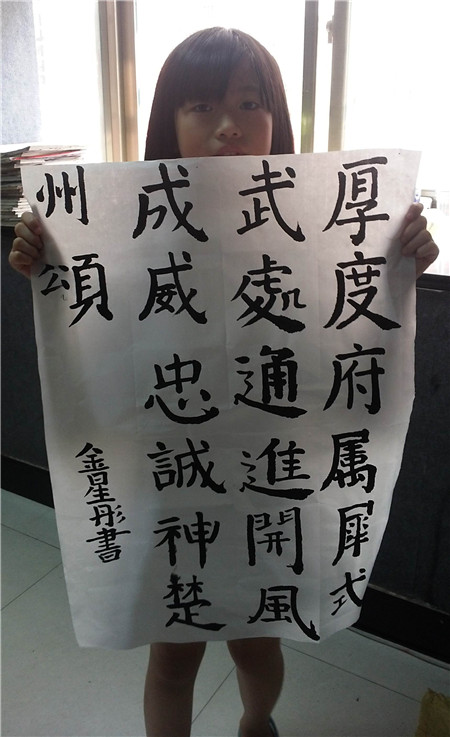 厚度府属犀式
武處通進開風
成威忠誠神楚
州頌
金星彤書